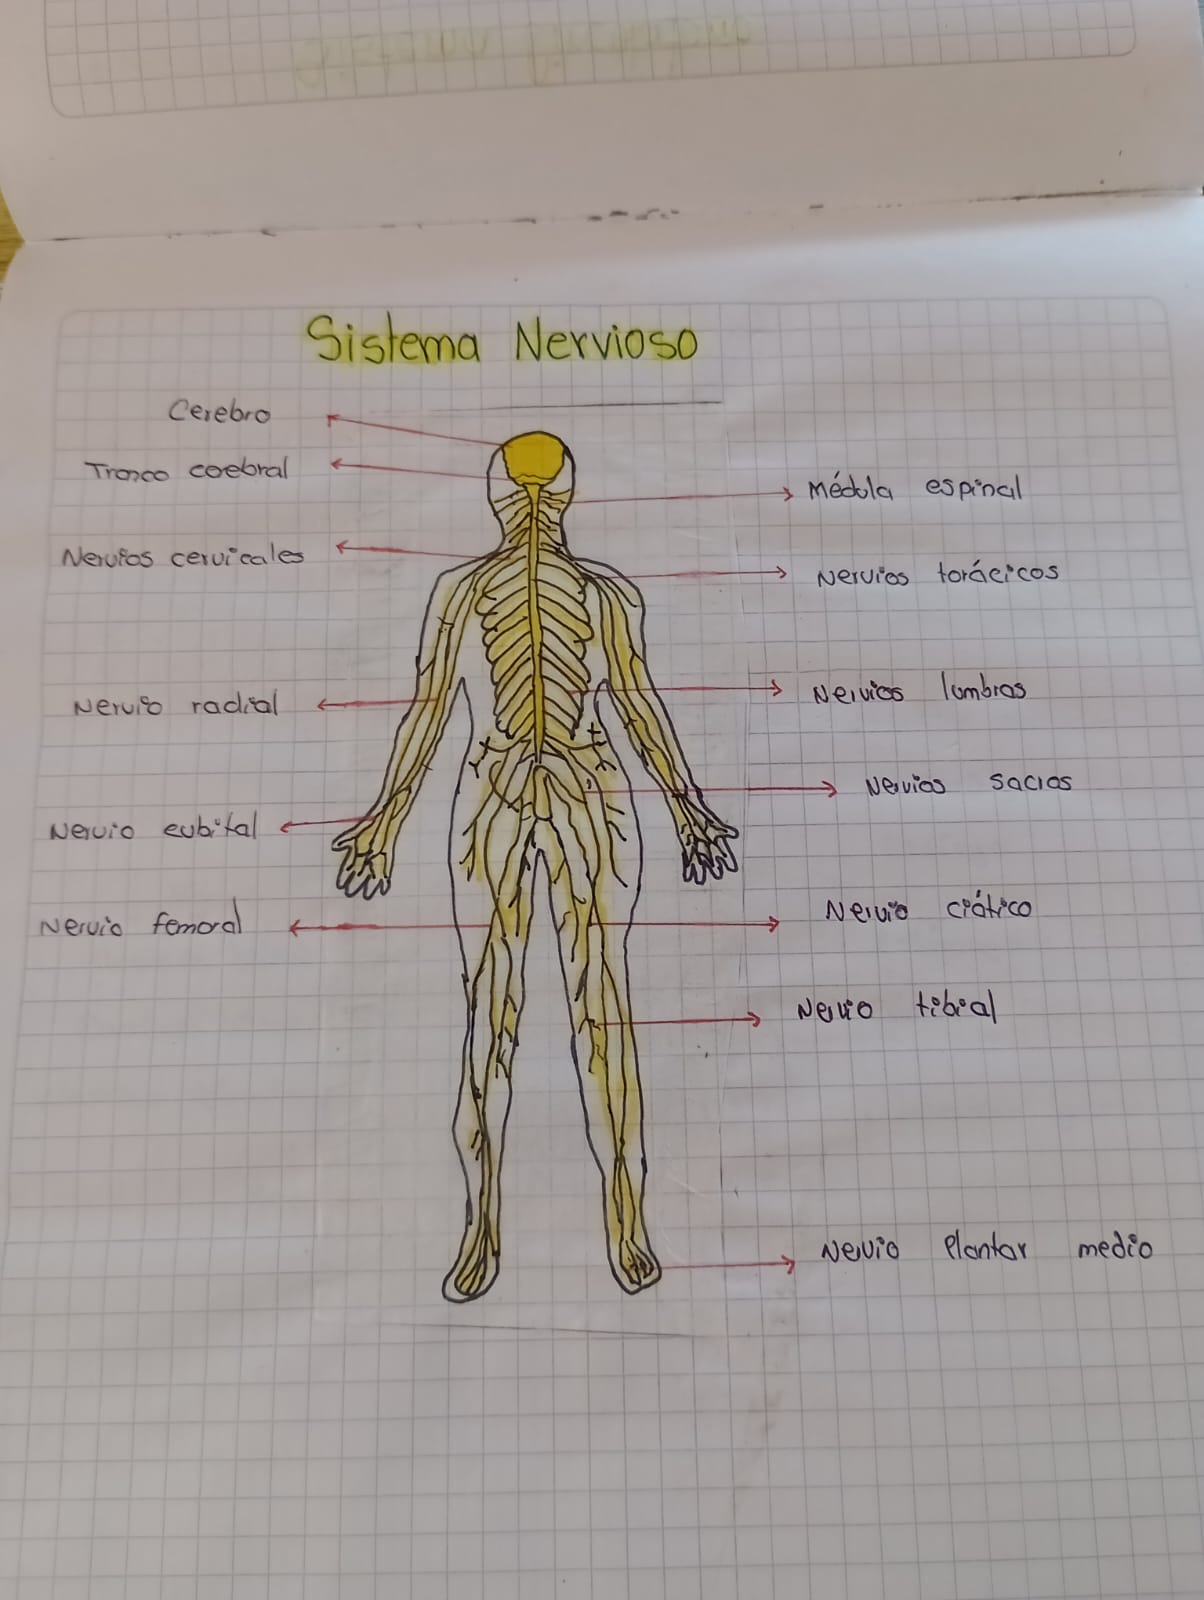 Sistema Nervioso
Cerebro
Tronco coebral
Médula espinal
Nervios cervicales
Nervios torácicos
Nervio radial
Nervios lumbros
Nervios sacros
Nervio cubital
Nervio femoral
Nervio ciático
Nervio tibial
Nervio Plantar medio